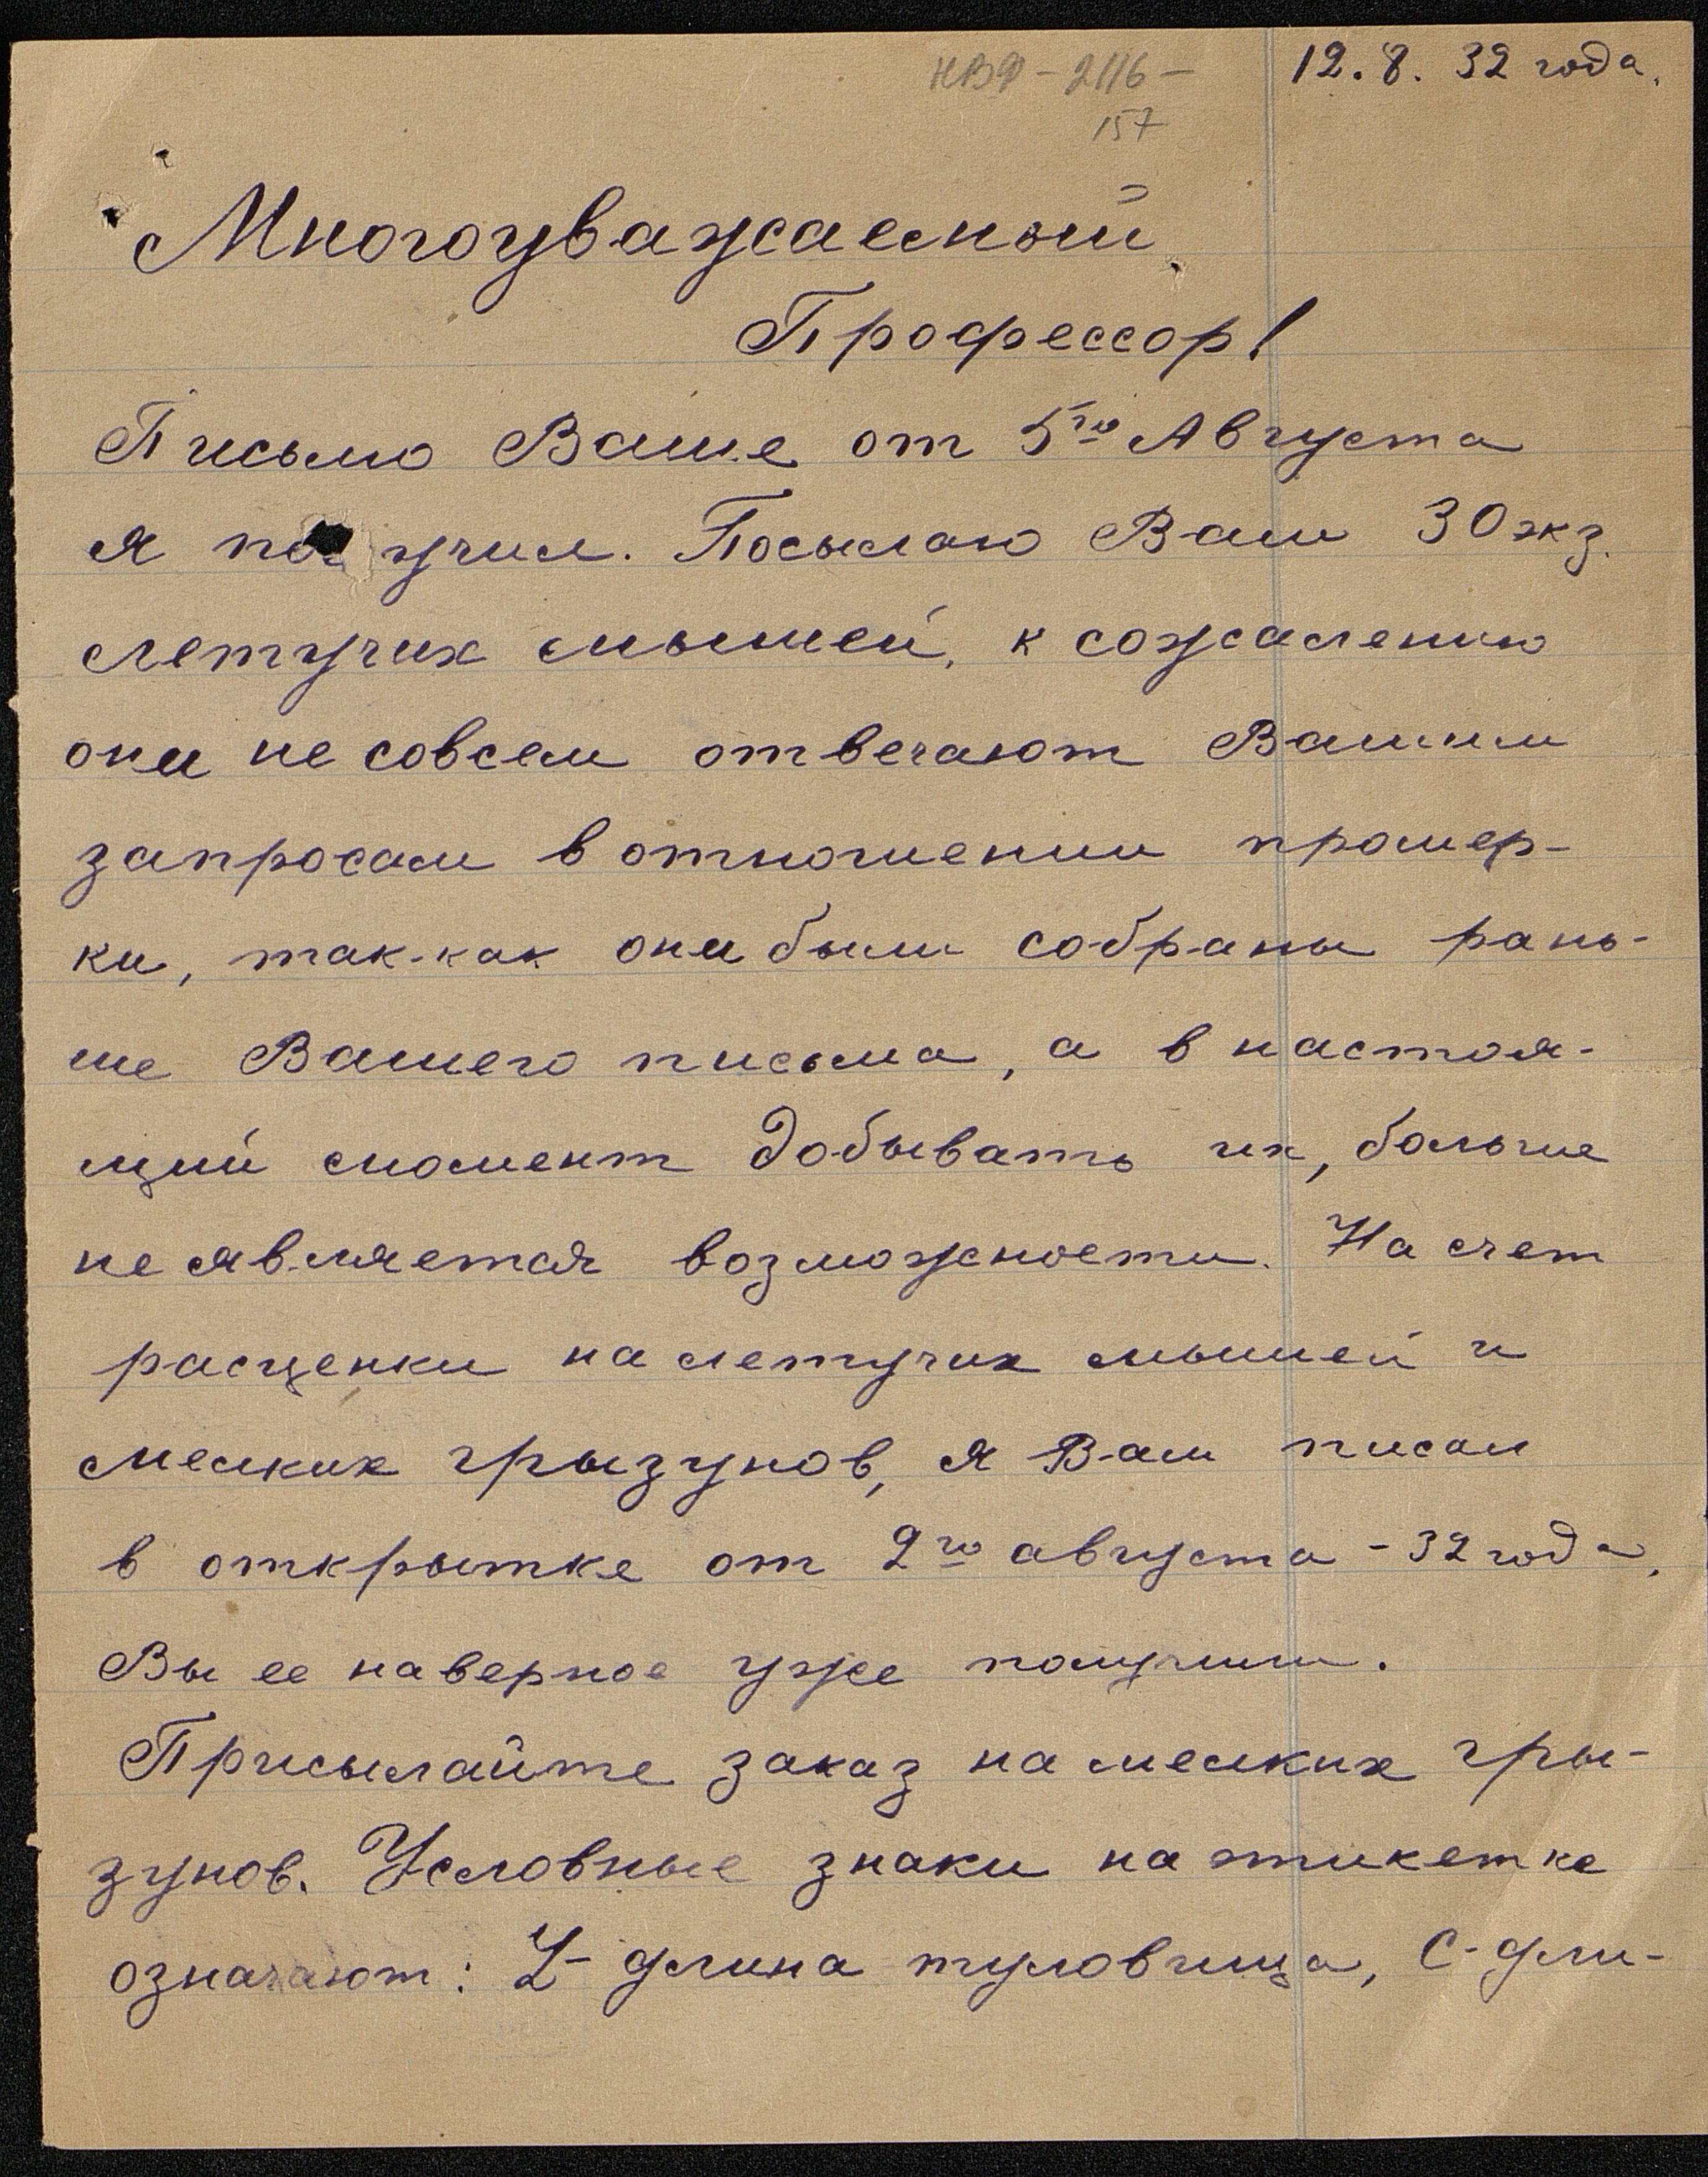 НВФ-2116-
157
12.8.32 года.
Многоуважаемый
Профессор!
Письмо Ваше от 5го Августа
я получил. Посылаю Вам 30 экз.
летучих мышей, к сожалению
они не совсем отвечают Вашим
запросам в отношении промер-
ки, так-как они были собраны рань-
ше Вашего письма, а в настоя-
щий момент добывать их, больше
не является возможности. На счет
расценки на летучих мышей и
мелких грызунов, я Вам писал
в открытке от 2го августа - 32 года,
Вы ее наверное уже получили.
Присылайте заказ на мелких гры-
зунов. Условные знаки на этикетке
означают: L- длина туловища, С- дли-